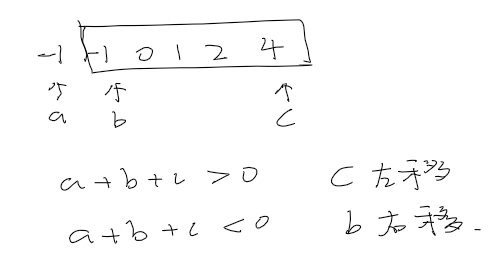 -1 -1 0 1 2 4
↑ ↑ ↑
a b c
a+b+c > 0 c 左移
a+b+c < 0 b 右移.